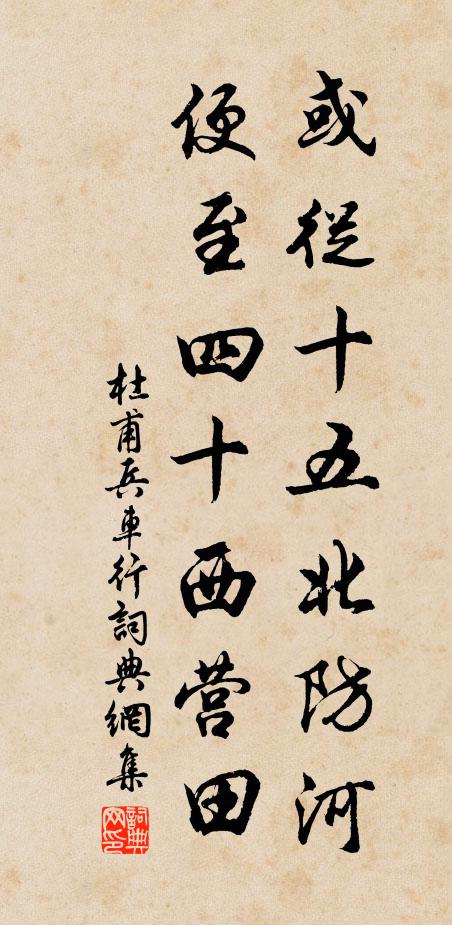 或從十五北防河
便至四十西营田
杜甫兵車行詞典網集
詞典网印